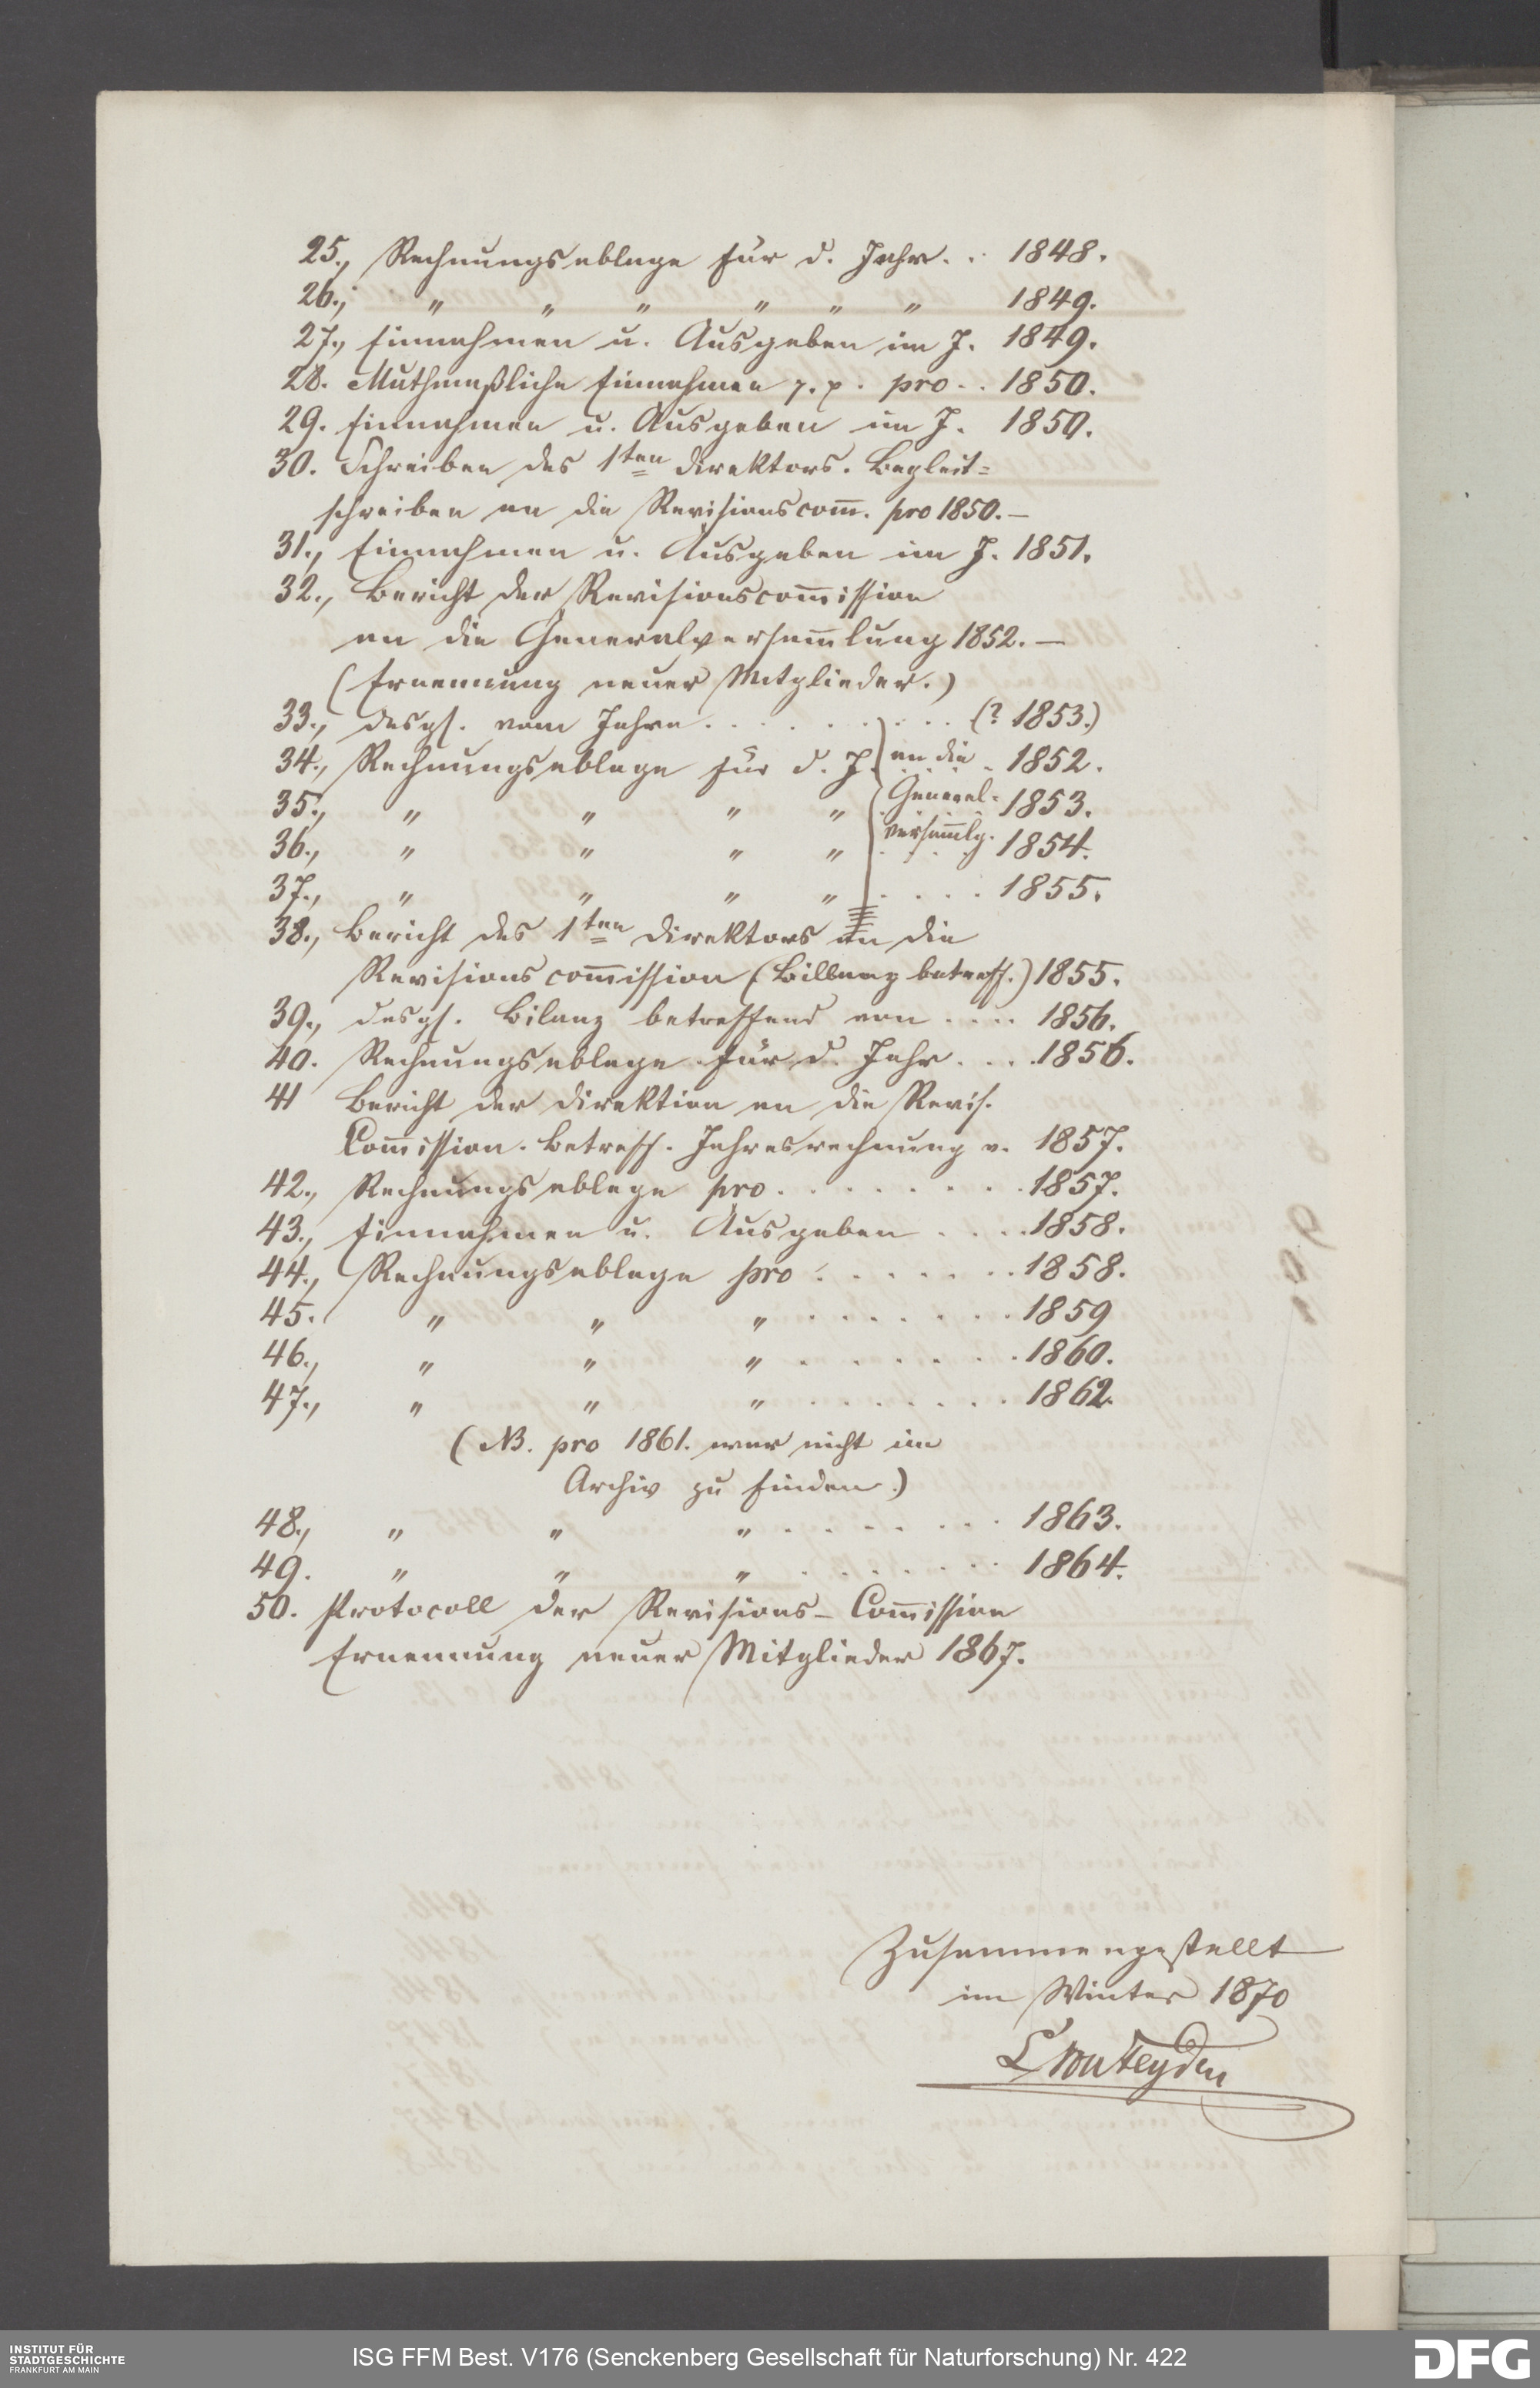 25., Rechnungsablage für d. Jahr. . . 1848.
26., " " " " " " 1849.
27., Einnahmen u. Ausgaben im J. 1849.
28. Muthmaßliche Einnahmen p. p. pro . . 1850.
29. Einnahmen u. Ausgaben im J. 1850.
30. Schreiben des 1ten Direktors. Begleit=
schreiben an die Revisionscom̅. pro 1850. —
31., Einnahmen u. Ausgaben im J. 1851.
32., Bericht der Revisionscom̅ission
an die Generalversam̅lung 1852. —
(Ernennung neuer Mitglieder.)
33., desgl. vom Jahre . . . . . . . . . (? 1853.)
34., Rechnungsablage für d. J. an die . 1852.
35., " " " " General= 1853.
36., " " " " versam̅lg. 1854.
37., " " " " . . . . 1855.
38., Bericht des 1ten Direktors an die
Revisionscom̅ission (Billanz betreff.) 1855.
39., desgl. Bilanz betreffend von . . . . 1856.
40. Rechnungsablage für d. Jahr . . . . 1856.
41 Bericht der Direktion an die Revis.
Com̅ission. Betreff. Jahresrechnung v. 1857.
42., Rechnungsablage pro . . . . . . . . 1857.
43., Einnahmen u. Ausgaben . . . . 1858.
44., Rechnungsablage pro . . . . . . . 1858.
45. " " " . . . . . . . 1859
46., " " " . . . . . . . 1860.
47., " " " . . . . . . . 1862.
(NB. pro 1861. war nicht im
Archiv zu finden.)
48., " " " . . . . . . . 1863.
49. " " " . . . . . . . 1864.
50. Protocoll der Revisions-Com̅ission
Ernennung neuer Mitglieder 1867.
Zusammengestellt
im Winter 1870
L von Heyden
INSTITUT FÜR
STADTGESCHICHTE
FRANKFURT AM MAIN
ISG FFM Best. V176 (Senckenberg Gesellschaft für Naturforschung) Nr. 422
DFG